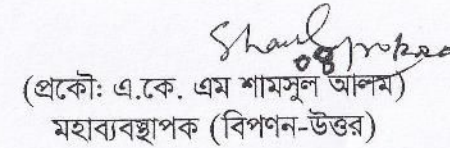 (প্রকৌঃ এ.কে. এম শামসুল আলম)
মহাব্যবস্থাপক (বিপণন-উত্তর)